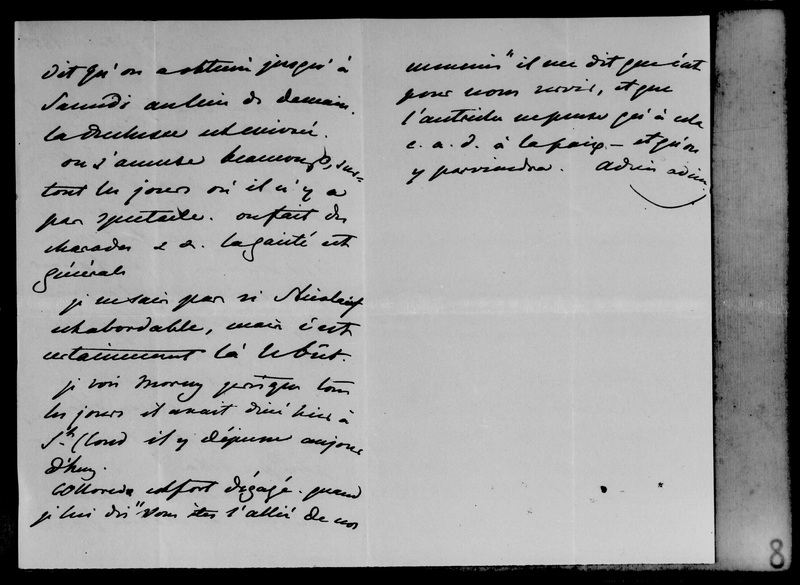 dit qu'on a obtenu jusqu'à
Samedi au lieu de demain.
la Duchesse est enivrée.
on s'amuse beaucoup, sur=
tout les jours où il n'y a
pas spectacle. on fait des
charades &c &. la gaieté est
générale
je ne sais pas si Nicolay
est abordable, mais c'est
certainement là le but.
je vois Morny presque tous
les jours il avait diné hier à
St. Cloud il y déjeune aujour
d'huy.
Colloredo est fort dégagé. quand
je lui dis "Vous êtes l'allié de nos
ennemis" il me dit que c'est
pour nous servir, et que
l'autriche ne pense qu'à cela
c. a. d. à la paix – et qu'on
y parviendra. adieu adieu.
8